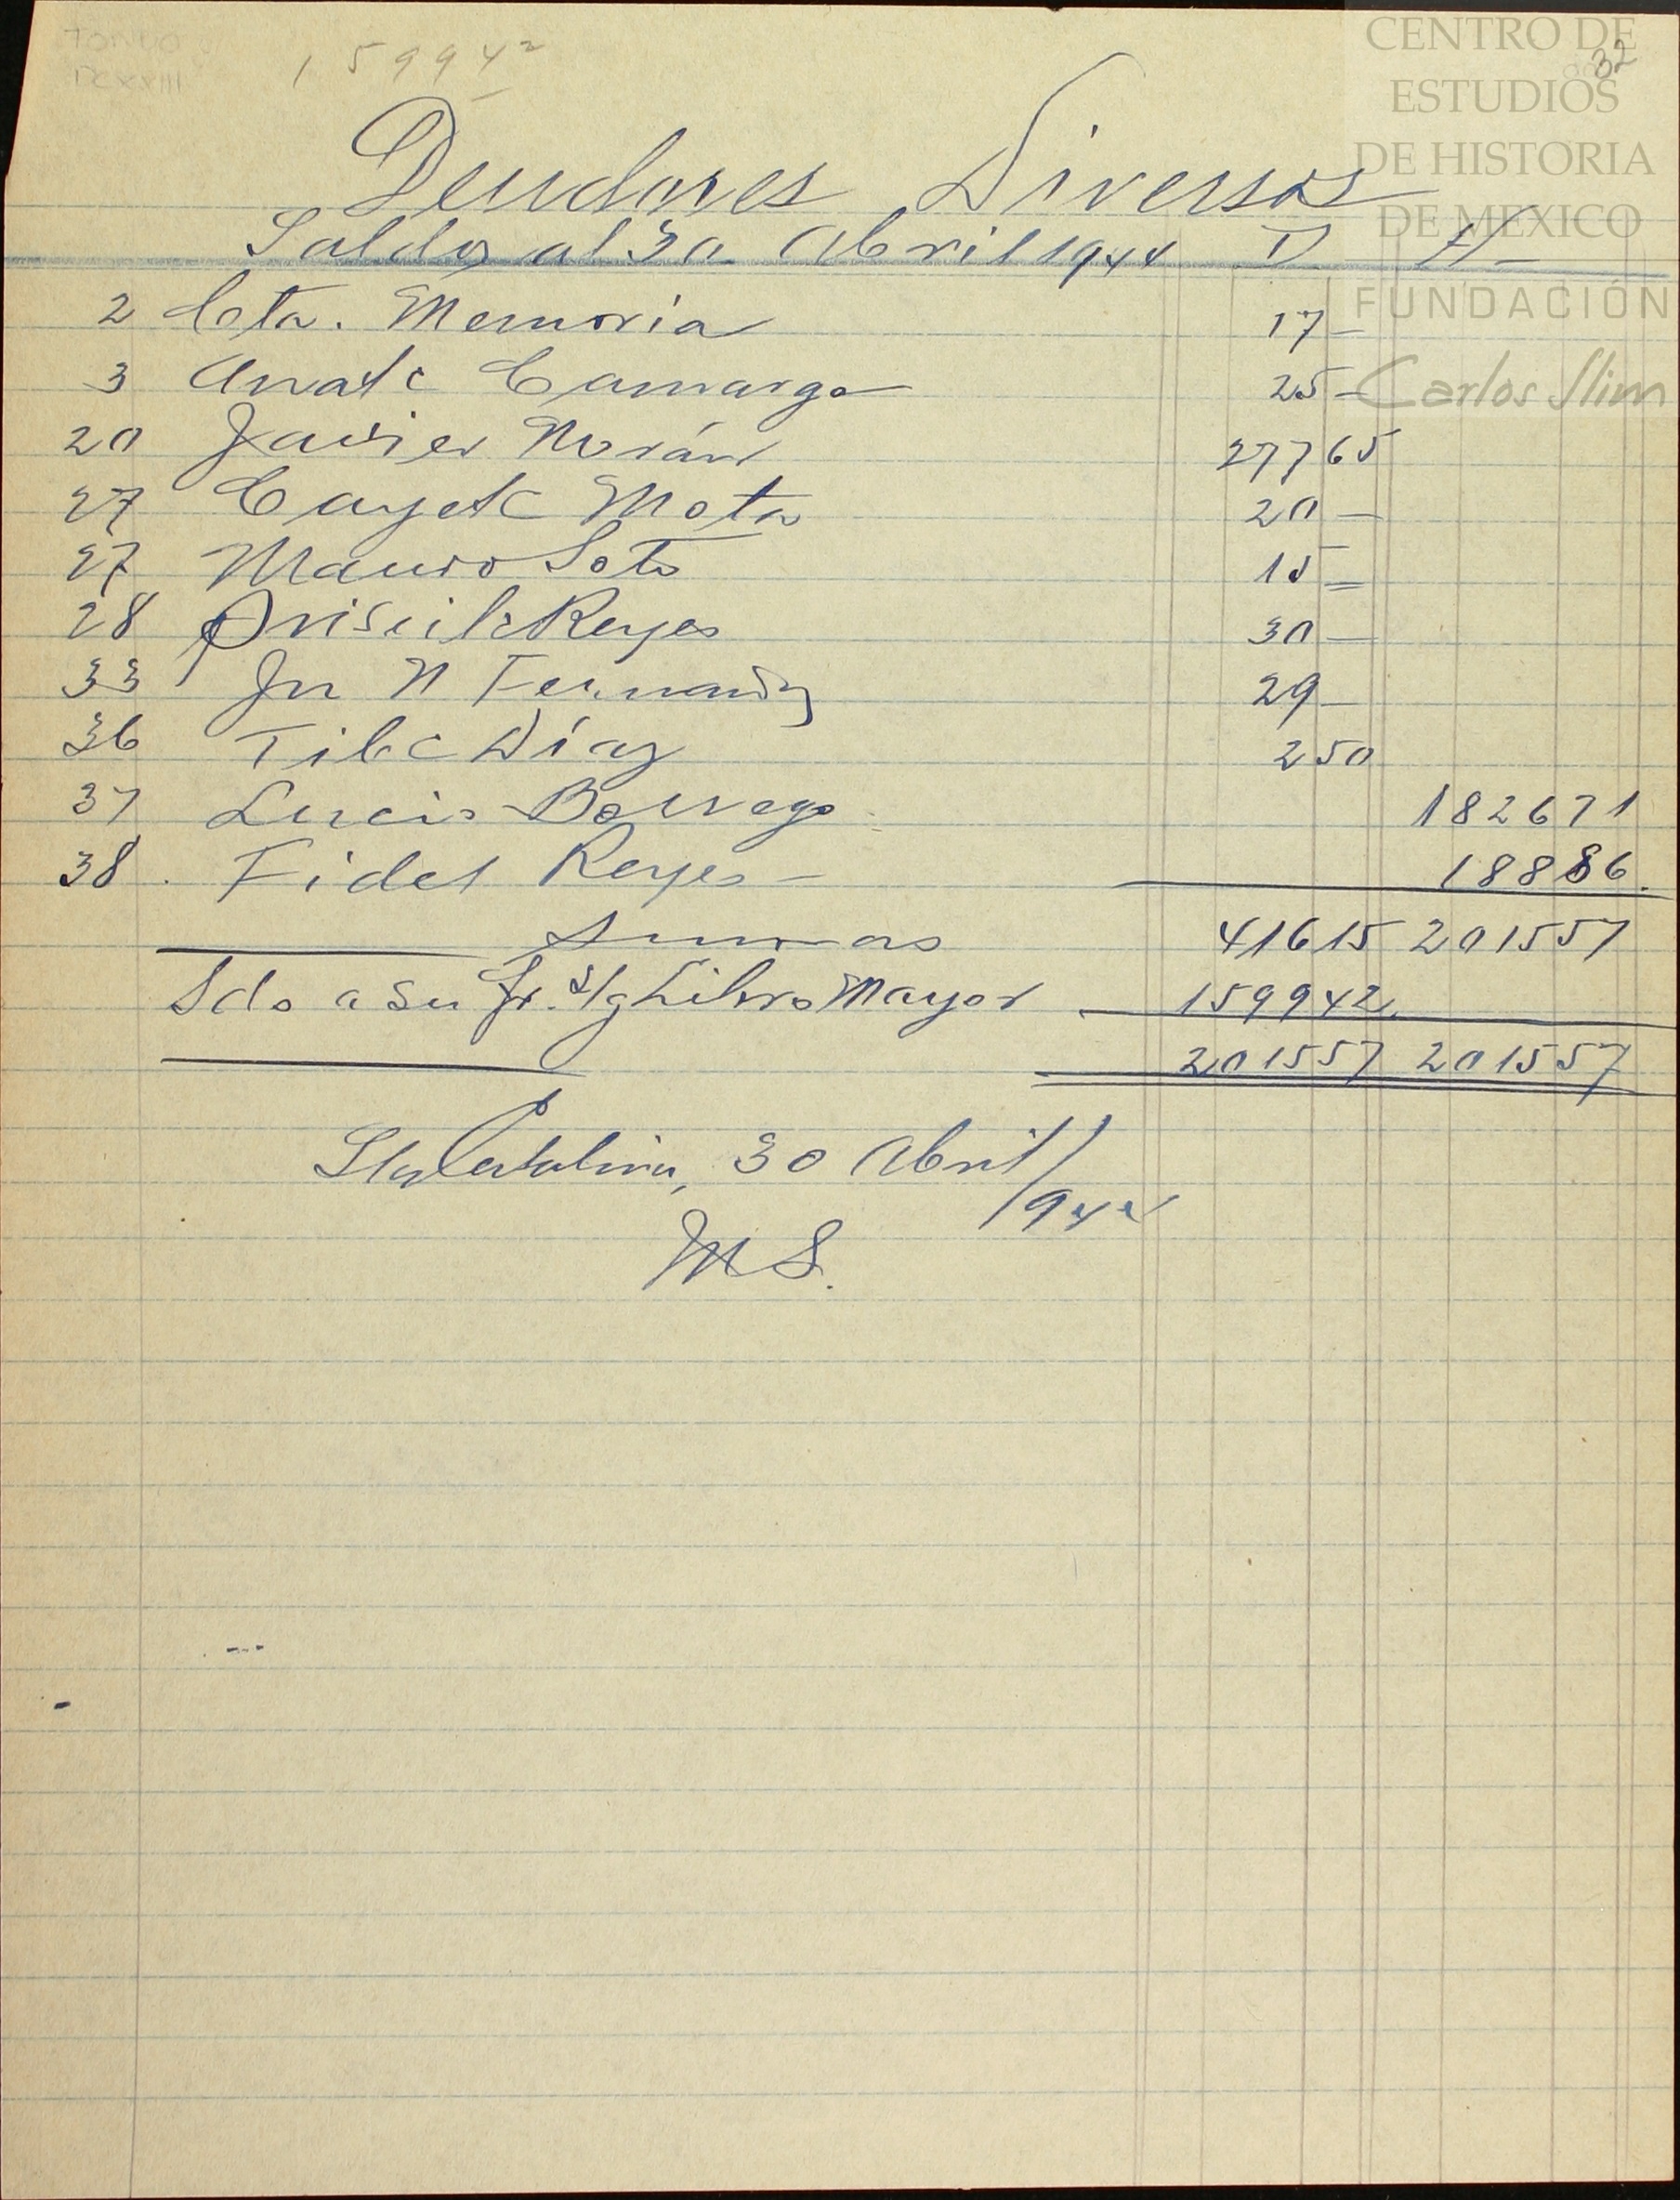 FONDO
DCXXIII
159942
32
CENTRO DE
ESTUDIOS
DE HISTORIA
DE MEXICO
FUNDACIÓN
Carlos Slim
Deudores Diversos
Saldos al 30 Abril 1944 D H
2 Cta. Memoria 17 —
3 Anatc Camargo 25 —
20 Javier Morán 277 65
27 Cayetc Mota 20 —
27 Mauro Soto 15 =
28 Priscila Reyes 30 —
33 Jn N Fernandz 29 —
36 Tibc Díaz 2 50
37 Lucio Borrego 1826 71
38. Fidel Reyes — 188 86.
Sumas 416 15 2015 57
Sdo a su fr. S/g Libro Mayor 1599 42
2015 57 2015 57
Sta Catalina, 30 Abril/
1944
MS.